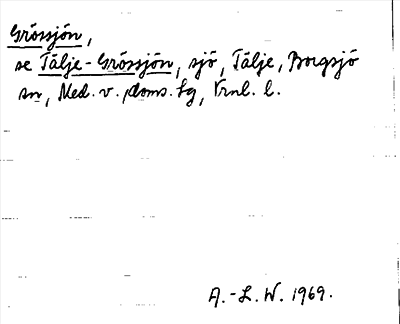 Grössjön,
se Tälje-Grössjön, sjö, Tälje, Borgsjö
sn, Med. v. doms. lg, Vrnl. l.
A.-L. W. 1969.